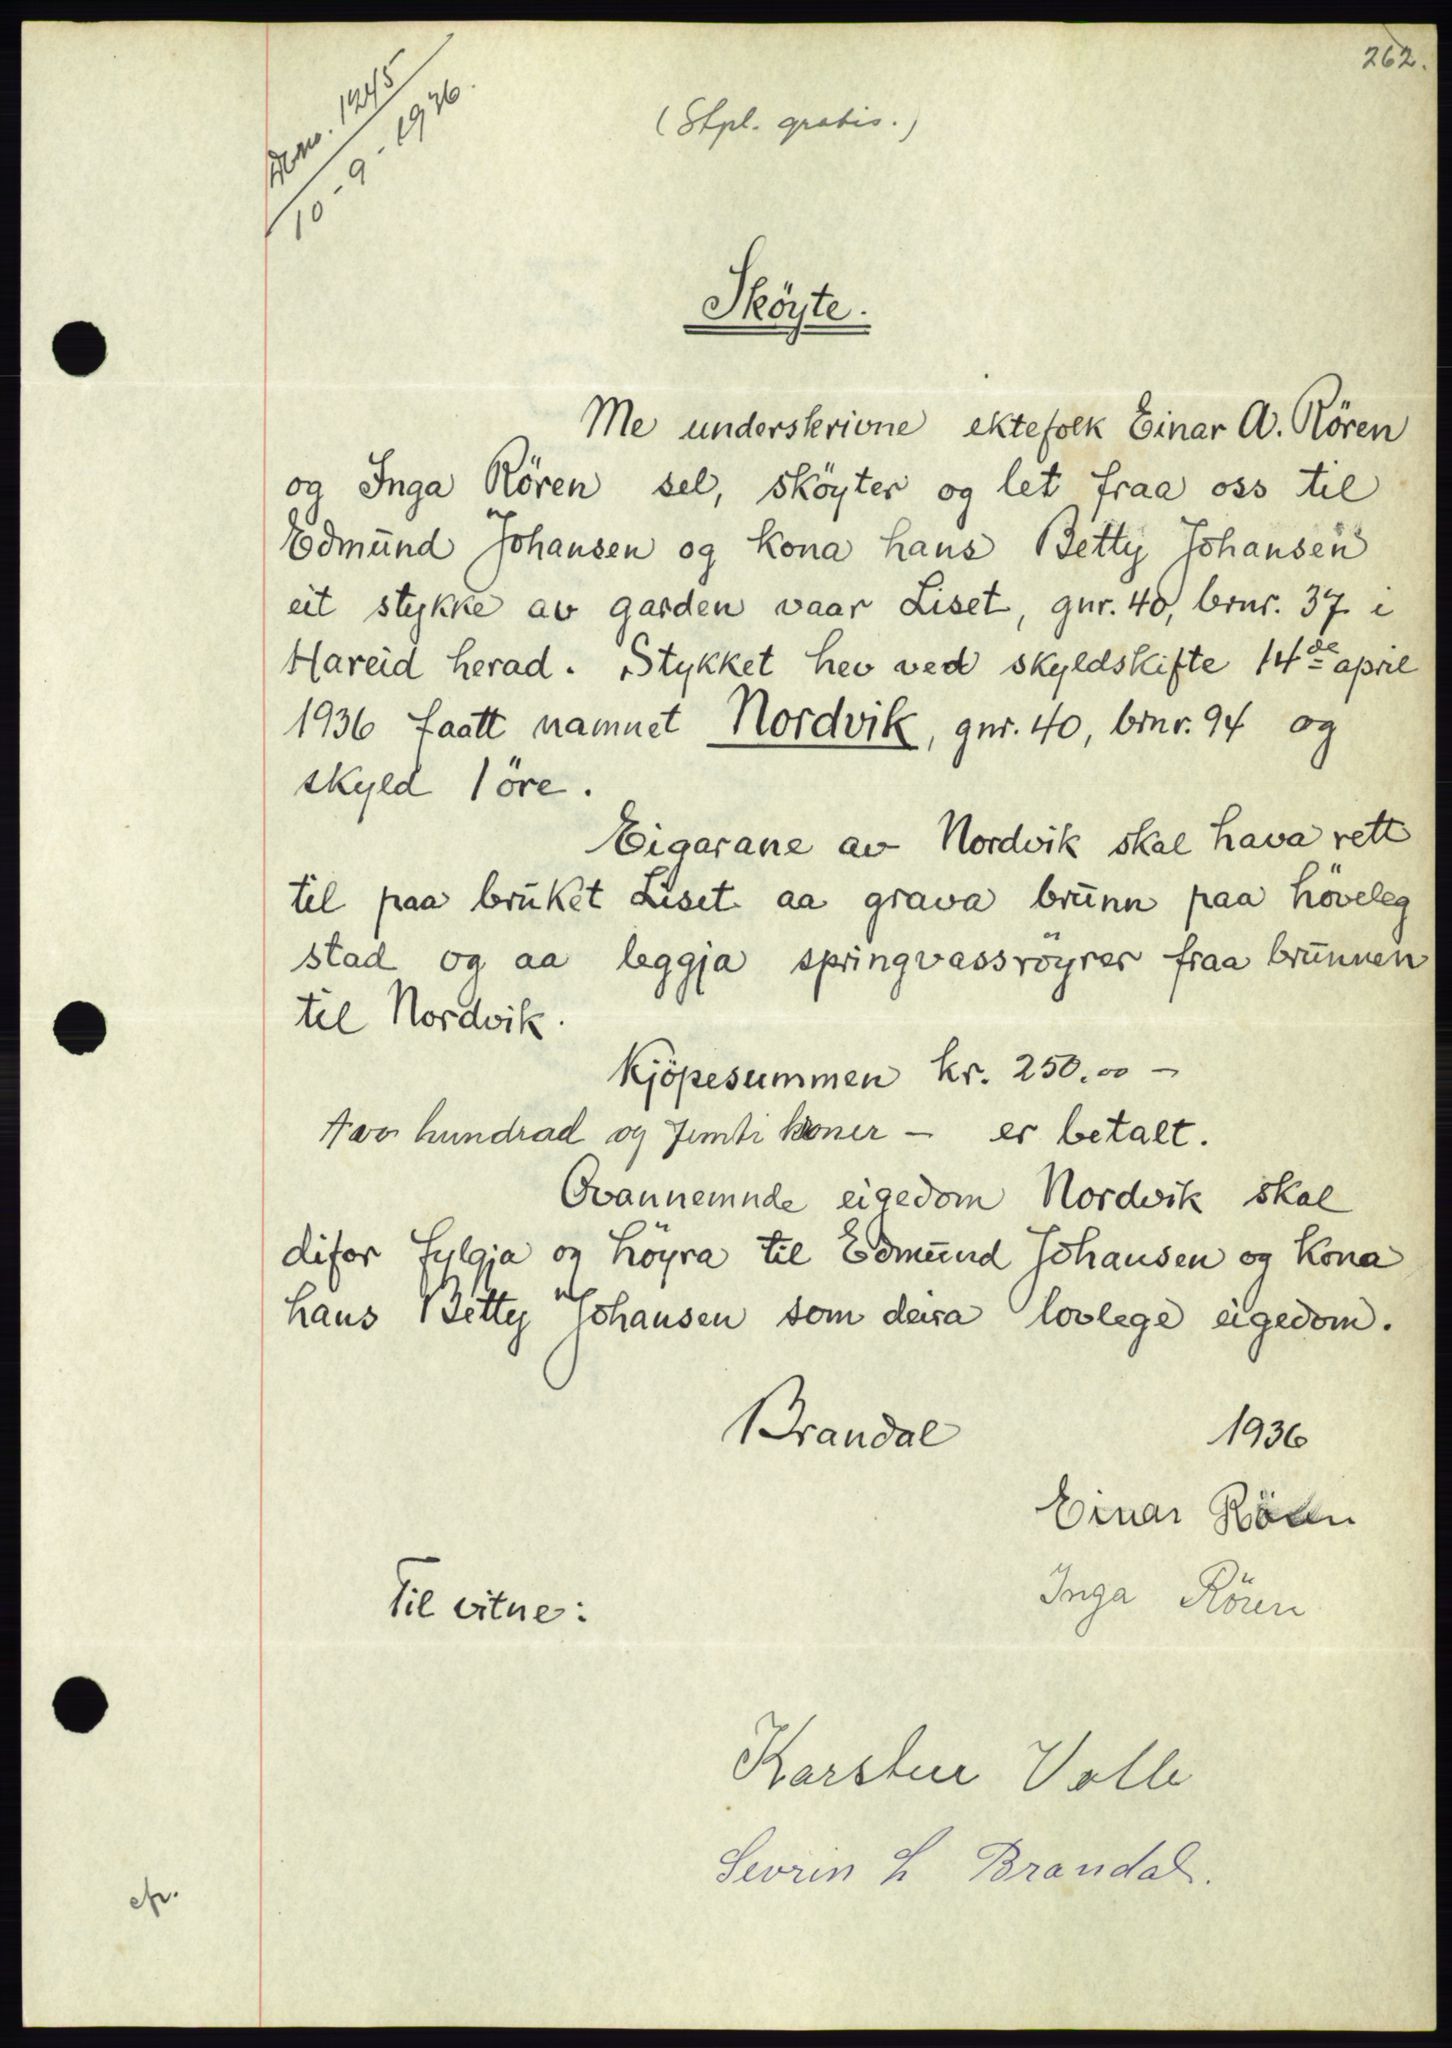 262.
Dbno. 1245
10-9-1936.
(Stpl. gratis.)
Sköyte.
Me underskrivne ektefolk Einar A. Rören
og Inga Rören sel, sköyter og let fraa oss til
Edmund Johansen og kona hans Betty Johansen
eit stykke av garden vaar Liset, gnr. 40, brnr. 37 i
Hareid herad. Stykket hev ved skyldskifte 14de april
1936 faatt namnet Nordvik, gnr. 40, brnr. 94 og
skyld 1 öre.
Eigarane av Nordvik skal hava rett
til paa bruket Liset aa grava brunn paa höveleg
stad og aa leggja springvassröyrer fraa brunnen
til Nordvik.
Kjöpesummen kr. 250.00 -
tvo hundrad og femti kroner - er betalt.
Ovannemnde eigedom Nordvik skal
difor fylgja og höyra til Edmund Johansen og kona
hans Betty Johansen som deira lovlege eigedom.
Brandal 1936
Einar Rören
Inga Rören
Til vitne:
Karsten Valle
Sevrin L Brandal.